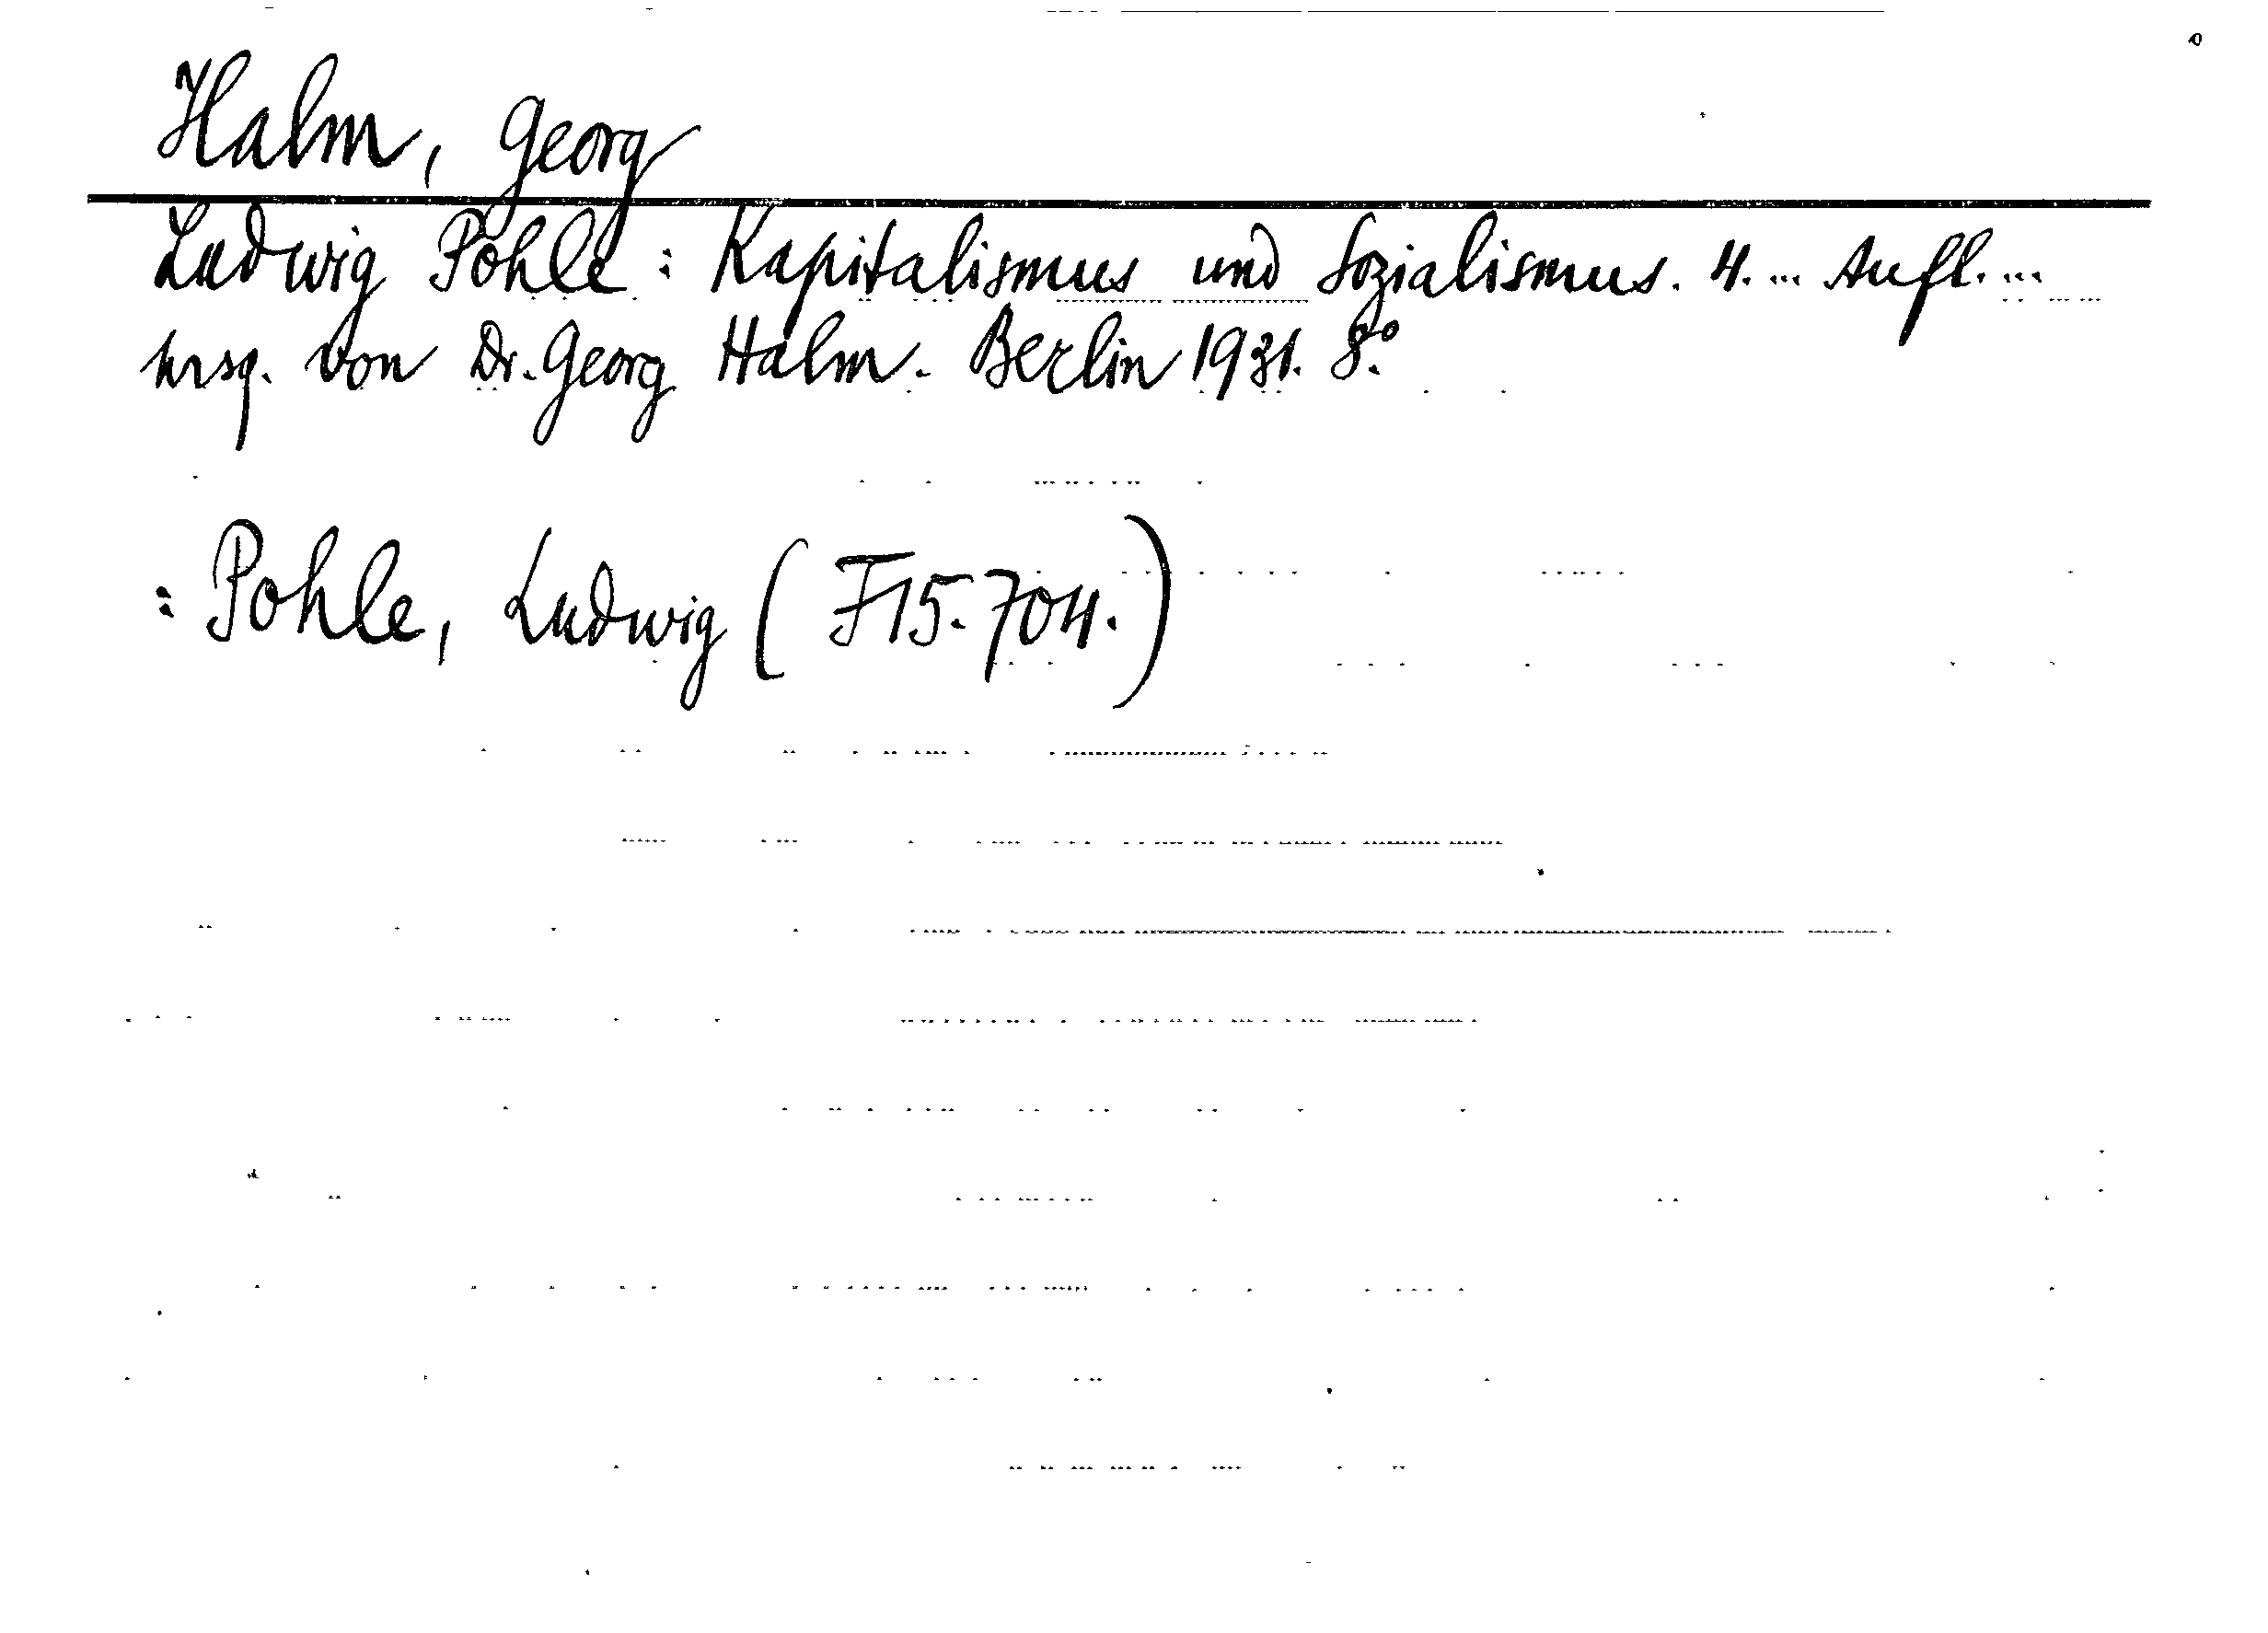 Halm, Georg
Ludwig Pohle: Kapitalismus und Sozialismus. 4. ... Aufl. ...
hrsg. von Dr. Georg Halm. Berlin 1931. 8.°
: Pohle, Ludwig (F15.704.)